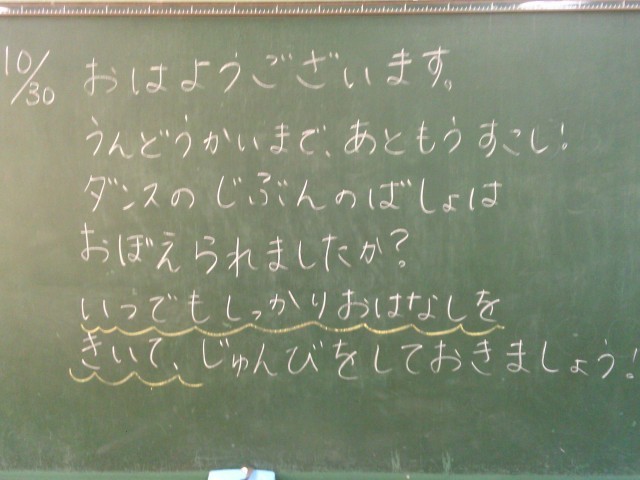 10/30 おはようございます。
うんどうかいまで、あともうすこし!
ダンスのじぶんのばしょは
おぼえられましたか?
いつでもしっかりおはなしを
きいて、じゅんびをしておきましょう!